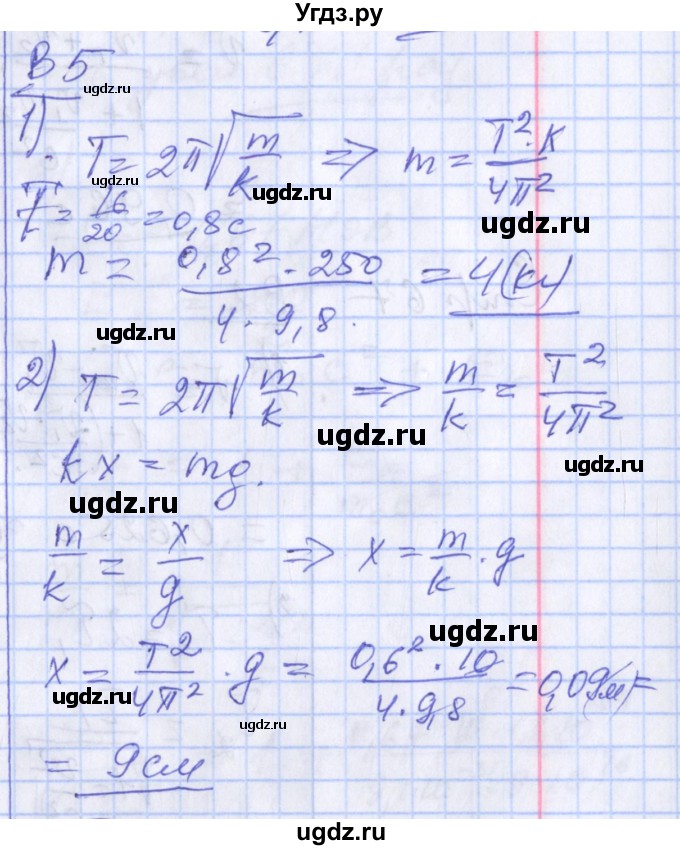 Угдз.ру
В 5
ugdz.ru
1). T = 2π√(m/k) => m = T²·k/4π²
ugdz.ru
ugdz.ru
T = 16/20 = 0,8 с
ugdz.ru
m = 0,8² · 250 / 4 · 9,8. = 4(кг)
ugdz.ru
2) T = 2π√(m/k) => m/k = T²/4π²
ugdz.ru
ugdz.ru
kx = mg.
ugdz.ru
m/k = x/g => x = m/k · g
ugdz.ru
x = T²/4π² · g = 0,6² · 10 / 4 · 9,8 = 0,09(м) =
ugdz.ru
ugdz.ru
= 9 см
ugdz.ru
ugdz.ru